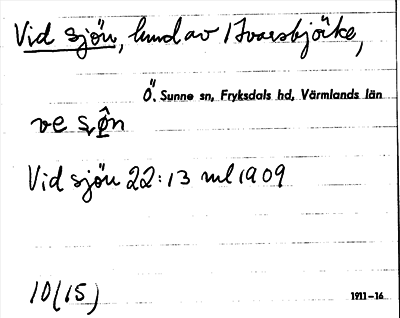 Vid sjön, hmd av Ivarsbjörke,
Ö. Sunne sn, Fryksdals hd, Värmlands län
ve
Vid sjön 22:13 ml 1909
10(15)
1911–16